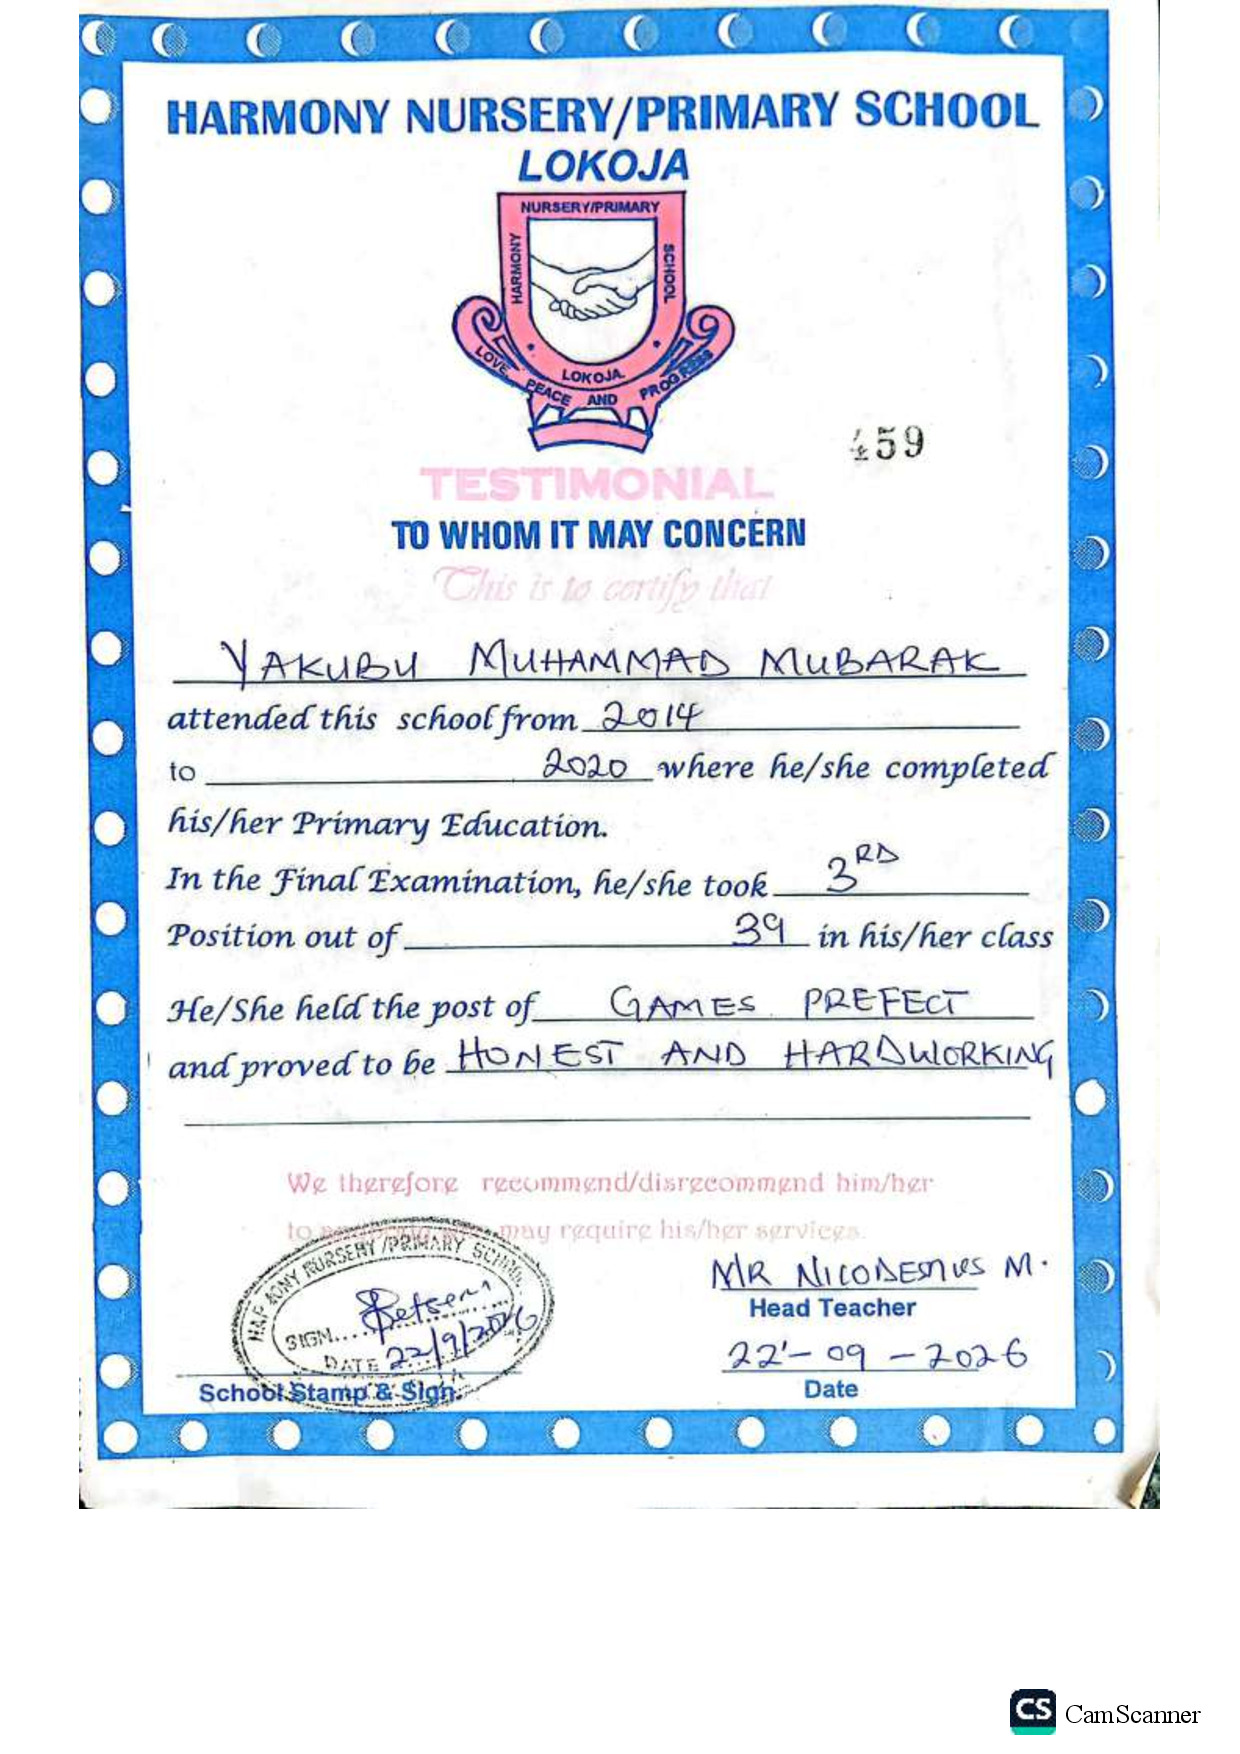 HARMONY NURSERY/PRIMARY SCHOOL
LOKOJA
NURSERY/PRIMARY
HARMONY
SCHOOL
LOKOJA
LOVE, PEACE AND PROGRESS
459
TESTIMONIAL
TO WHOM IT MAY CONCERN
This is to certify that
YAKUBU MUHAMMAD MUBARAK
attended this school from 2014
to 2020 where he/she completed
his/her Primary Education.
In the Final Examination, he/she took 3RD
Position out of 39 in his/her class
He/She held the post of GAMES PREFECT
and proved to be HONEST AND HARDWORKING
We therefore recommend/disrecommend him/her
to may require his/her services.
HARMONY NURSERY/PRIMARY SCHOOL
SIGN....
DATE 22/9/2026
School Stamp & Sign.
MR NICODEMUS M.
Head Teacher
22-09-2026
Date
CS CamScanner